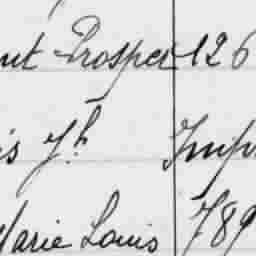 ut Prosper 126
is Jh Imp
Marie Louis 789